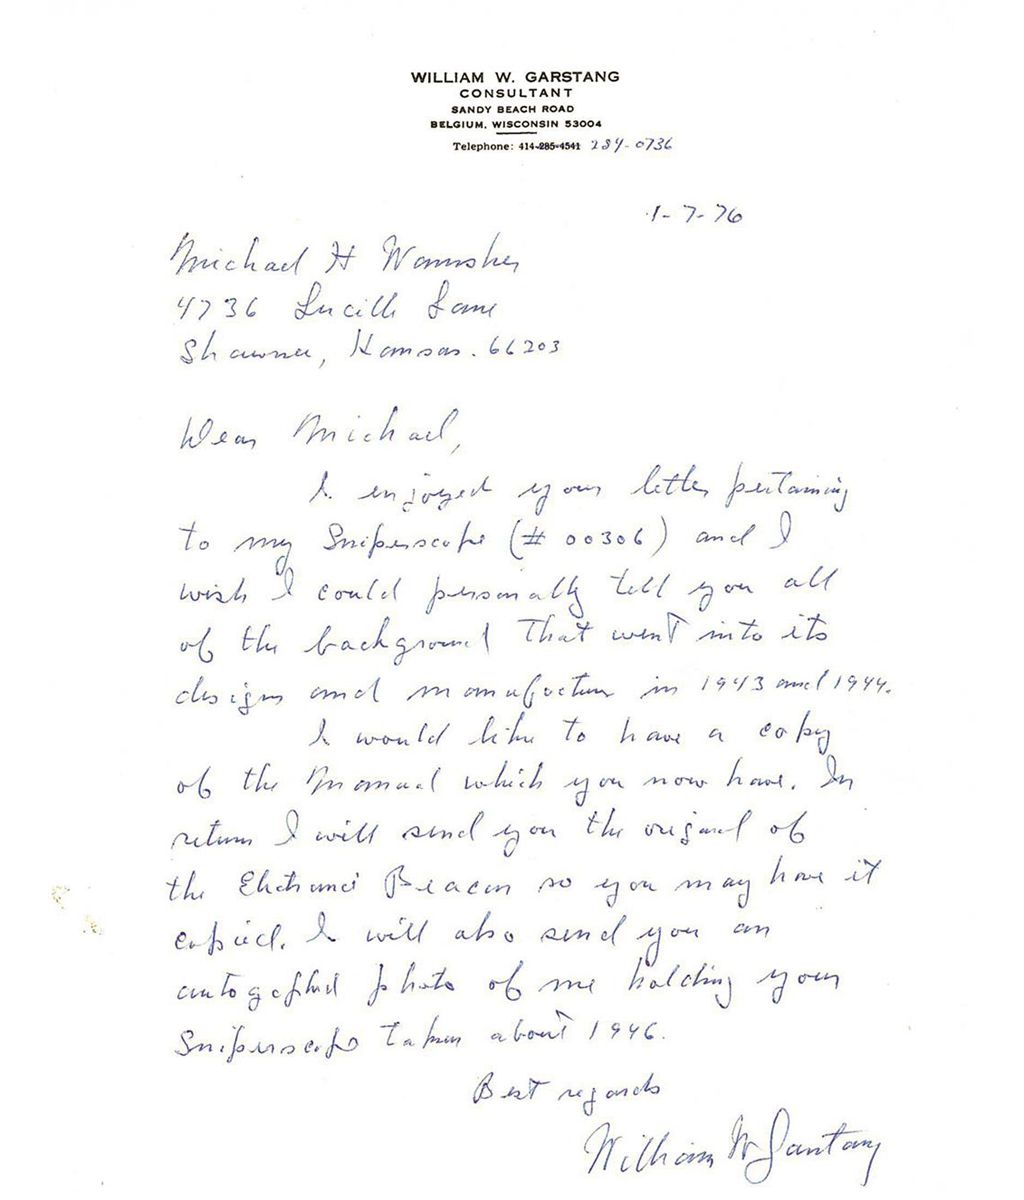 WILLIAM W. GARSTANG
CONSULTANT
SANDY BEACH ROAD
BELGIUM, WISCONSIN 53004
Telephone: 414-285-4541 284-0736
1-7-76
Michael H
4736 Lucille Lane
Shawnee, Kansas. 66203
Dear Michael,
I enjoyed your letter pertaining
to my Sniperscope (# 00306) and I
wish I could personally tell you all
of the background that went into its
design and manufacture in 1943 and 1944.
I would like to have a copy
of the Manual which you now have. In
return I will send you the original of
the Electronic Beacon so you may have it
copied. I will also send you an
autographed photo of me holding your
Sniperscope taken about 1946.
Best regards
William W Garstang